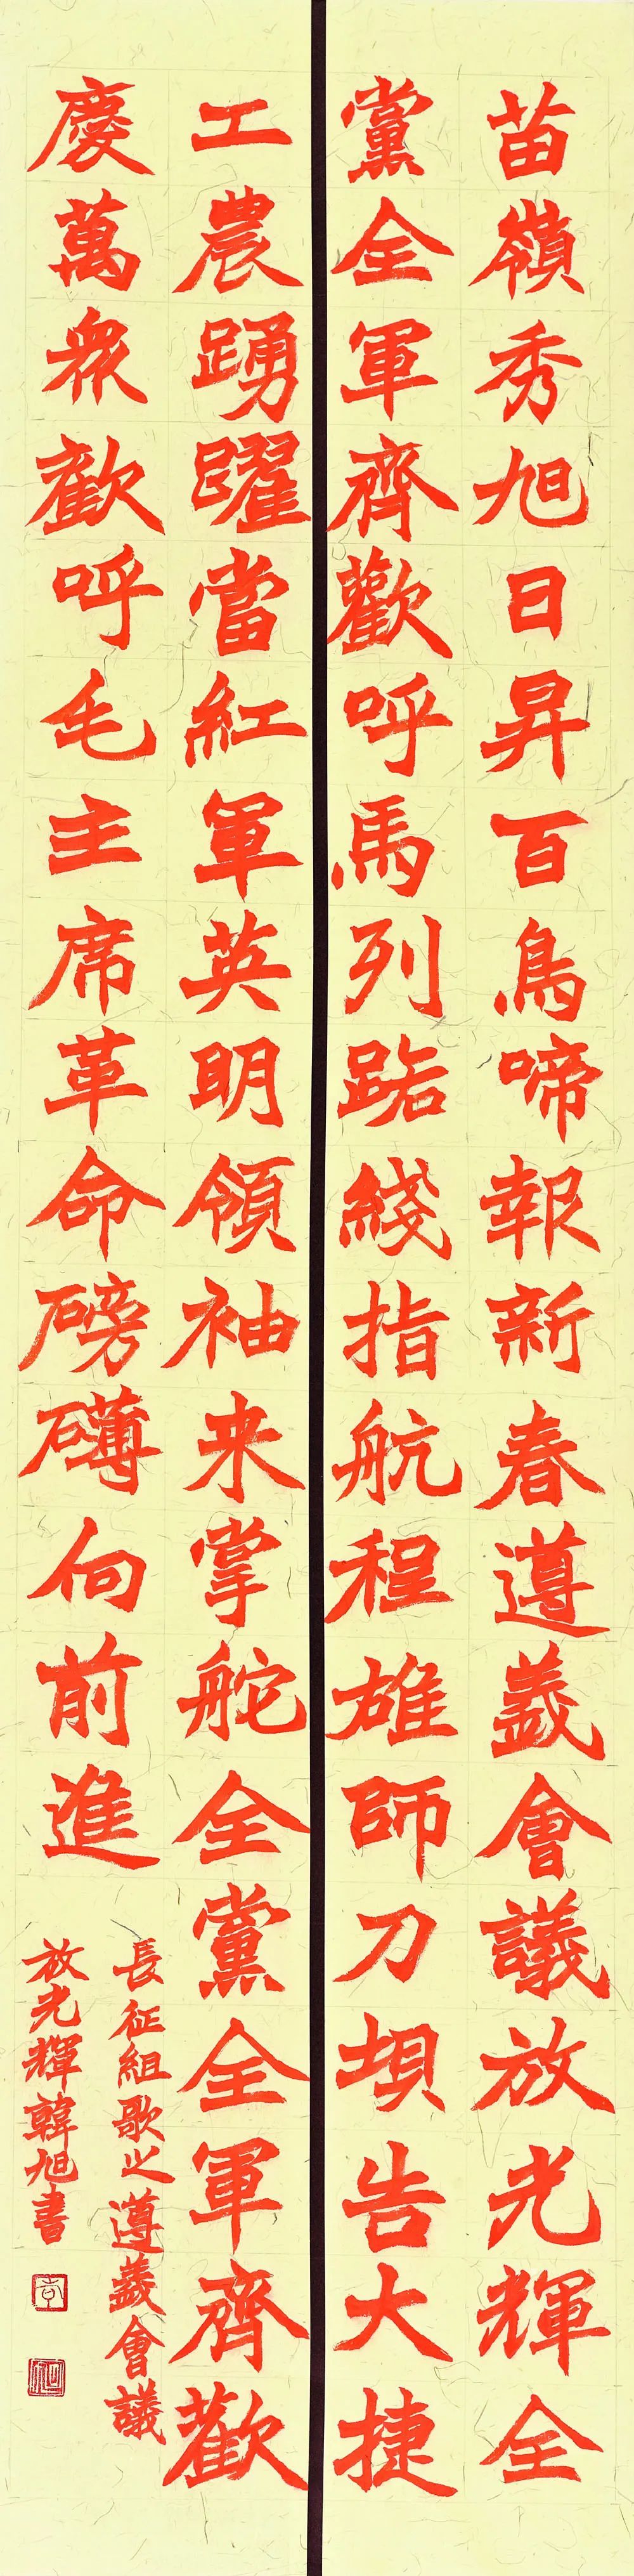 苗嶺秀旭日昇百鳥啼報新春遵義會議放光輝全
黨全軍齊歡呼馬列路綫指航程雄師刀垻告大捷
工農踴躍當紅軍英明領袖来掌舵全黨全軍齊歡
慶萬衆歡呼毛主席革命磅礴向前進
長征組歌之遵義會議
放光輝韓旭書